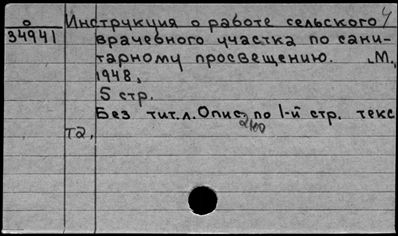 о Инструкция о работе сельского 4
34941 врачебного участка по сани-
тарному просвещению. М.,
1948.
5 стр.
Без тит.л. Опис. по 1-й стр. текс
та.